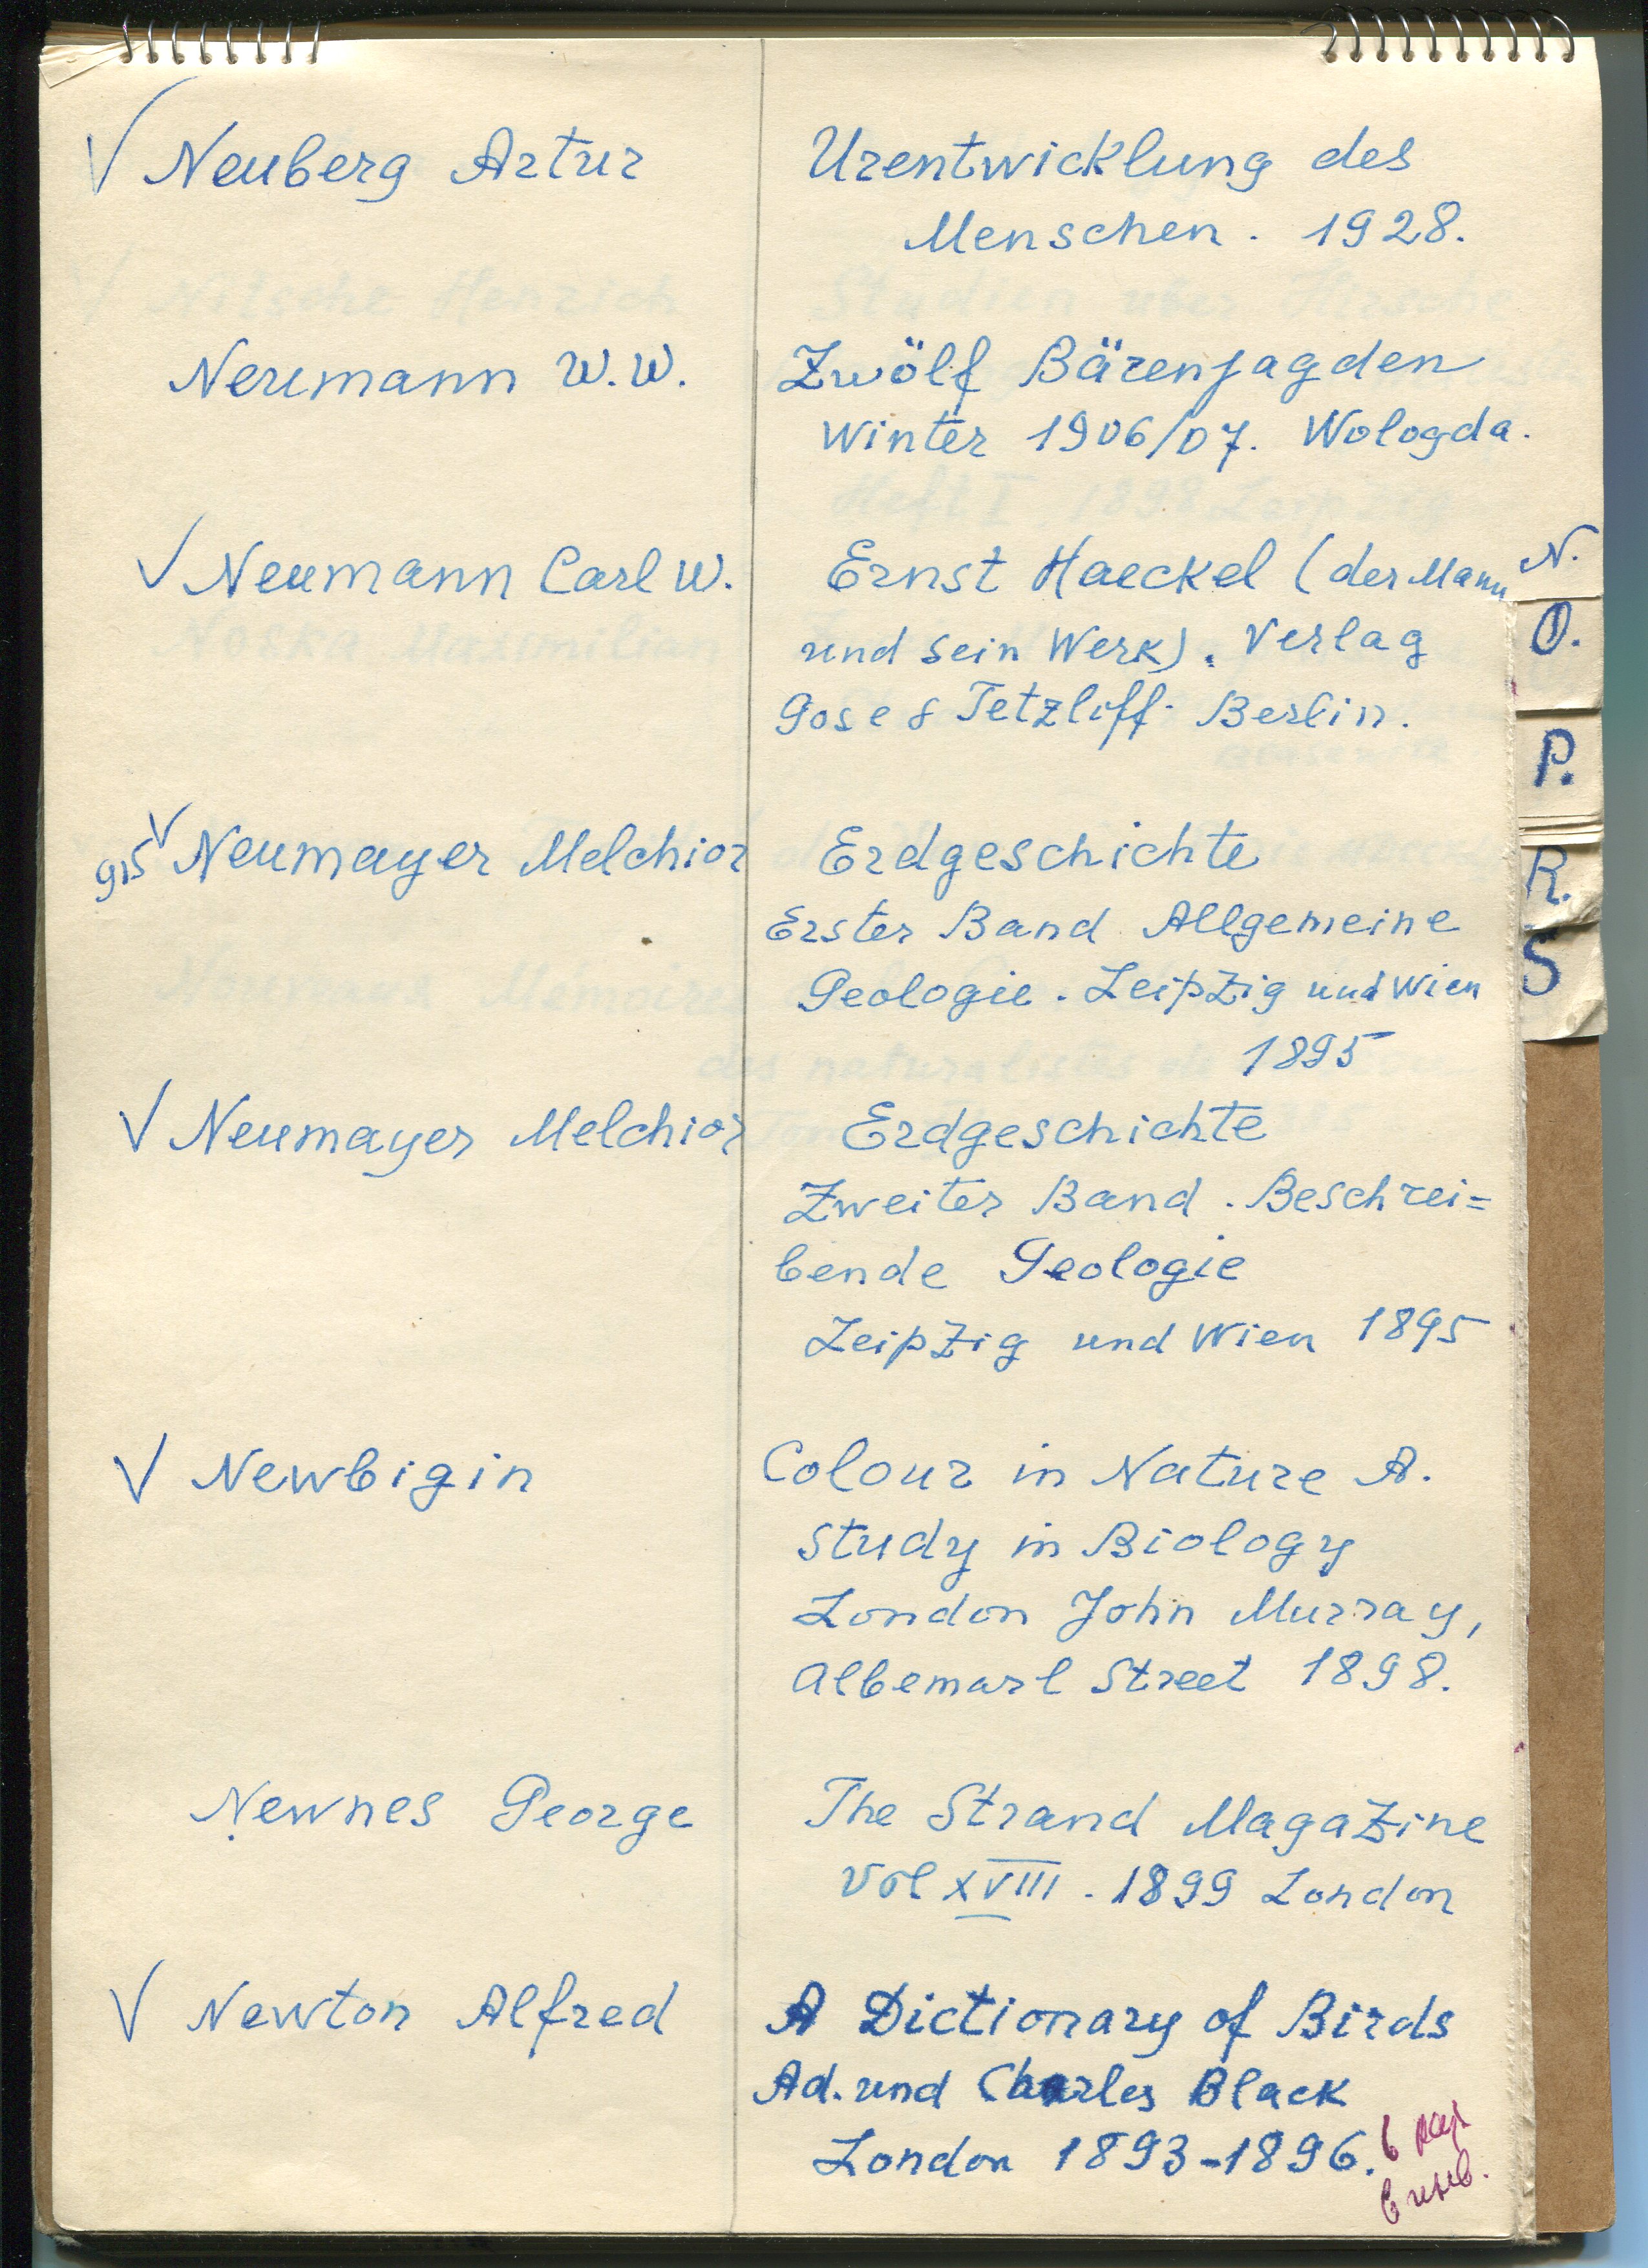 √ Neuberg Artur
Urentwicklung des
Menschen. 1928.
Neumann W.W.
Zwölf Bärenjagden
Winter 1906/07. Wologda.
√ Neumann Carl W.
Ernst Haeckel (der Mann
und sein Werk). Verlag
Gose & Tetzliff. Berlin.
915 √ Neumayer Melchior
Erdgeschichte
Erster Band Allgemeine
Geologie. Leipzig und Wien
1895
√ Neumayer Melchior
Erdgeschichte
Zweiter Band. Beschrei=
bende Geologie
Leipzig und Wien 1895
√ Newbigin
Colour in Nature A.
Study in Biology
London John Murray,
Albemarl Street 1898.
Newnes George
The Strand Magazine
Vol XVIII. 1899 London
√ Newton Alfred
A Dictionary of Birds
Ad. und Charles Black
London 1893-1896.
N.
O.
P.
R.
S